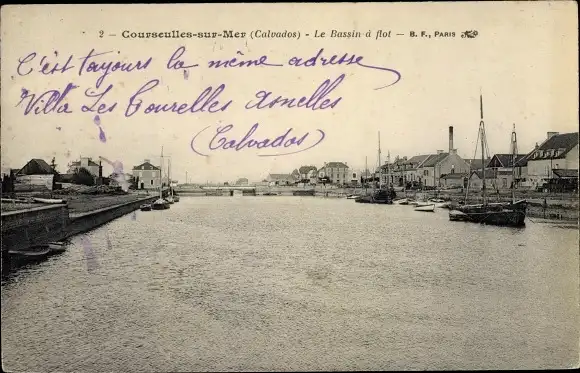 2 - Courseulles-sur-Mer (Calvados) - Le Bassin à flot - B. F., Paris
C'est toujours la même adresse
Villa Les Tourelles Asnelles
Calvados